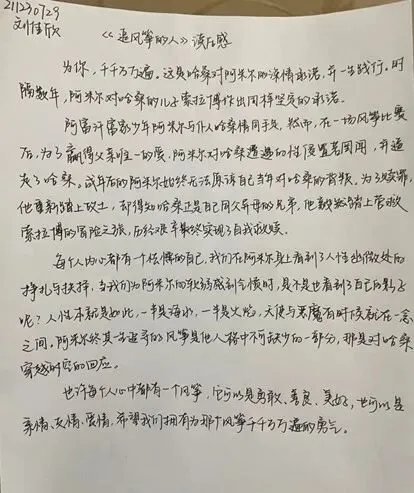 211230729
刘佳欣
《追风筝的人》读后感
为你，千千万万遍。这是哈桑对阿米尔的深情承诺，并一生践行。时
隔数年，阿米尔对哈桑的儿子索拉博作出同样坚定的承诺。
阿富汗富家少年阿米尔与仆人哈桑情同手足。然而，在一场风筝比赛
后，为了赢得父亲唯一的爱，阿米尔对哈桑遭遇的性侵置若罔闻，并逼
走了哈桑。成年后的阿米尔始终无法原谅自己当年对哈桑的背叛。为了赎罪，
他重新踏上故土，却得知哈桑正是自己同父异母的兄弟，他毅然踏上营救
索拉博的冒险之旅，历经艰辛最终实现了自我救赎。
每个人内心都有一个怯懦的自己，我们在阿米尔身上看到了人性幽微处的
挣扎与抉择，当我们为阿米尔的软弱感到不憤时，是不是也看到了自己的影子
呢？人性本就是如此，一半是海水，一半是火焰，天使与恶魔有时候就在一念
之间。阿米尔终其一生追寻的风筝是他人格中不可缺少的一部分，那是对哈桑
穿越时空的回应。
也许每个人心中都有一个风筝，它可以是勇敢、善良、美好，也可以是
亲情、友情、爱情，希望我们拥有为那个风筝千千万万遍的勇气。